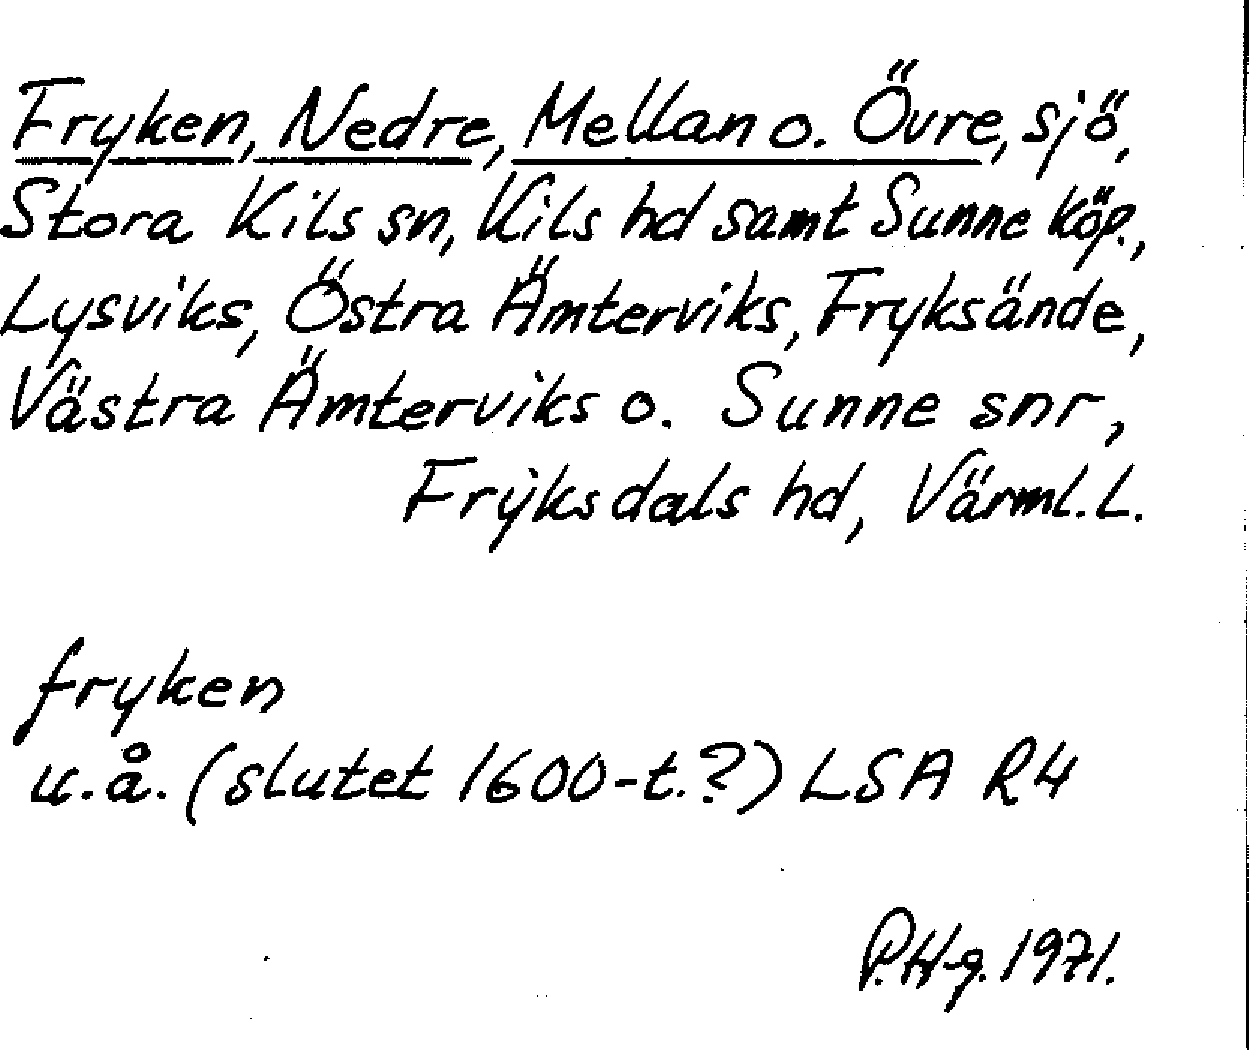 Fryken, Nedre, Mellan o. Övre, sjö,
Stora Kils sn, Kils hd samt Sunne köp.,
Lysviks, Östra Ämterviks, Fryksände,
Västra Ämterviks o. Sunne snr,
Fryksdals hd, Värml. L.
fryken
u.å. (slutet 1600-t.?) LSA R4
P.H-g. 1971.